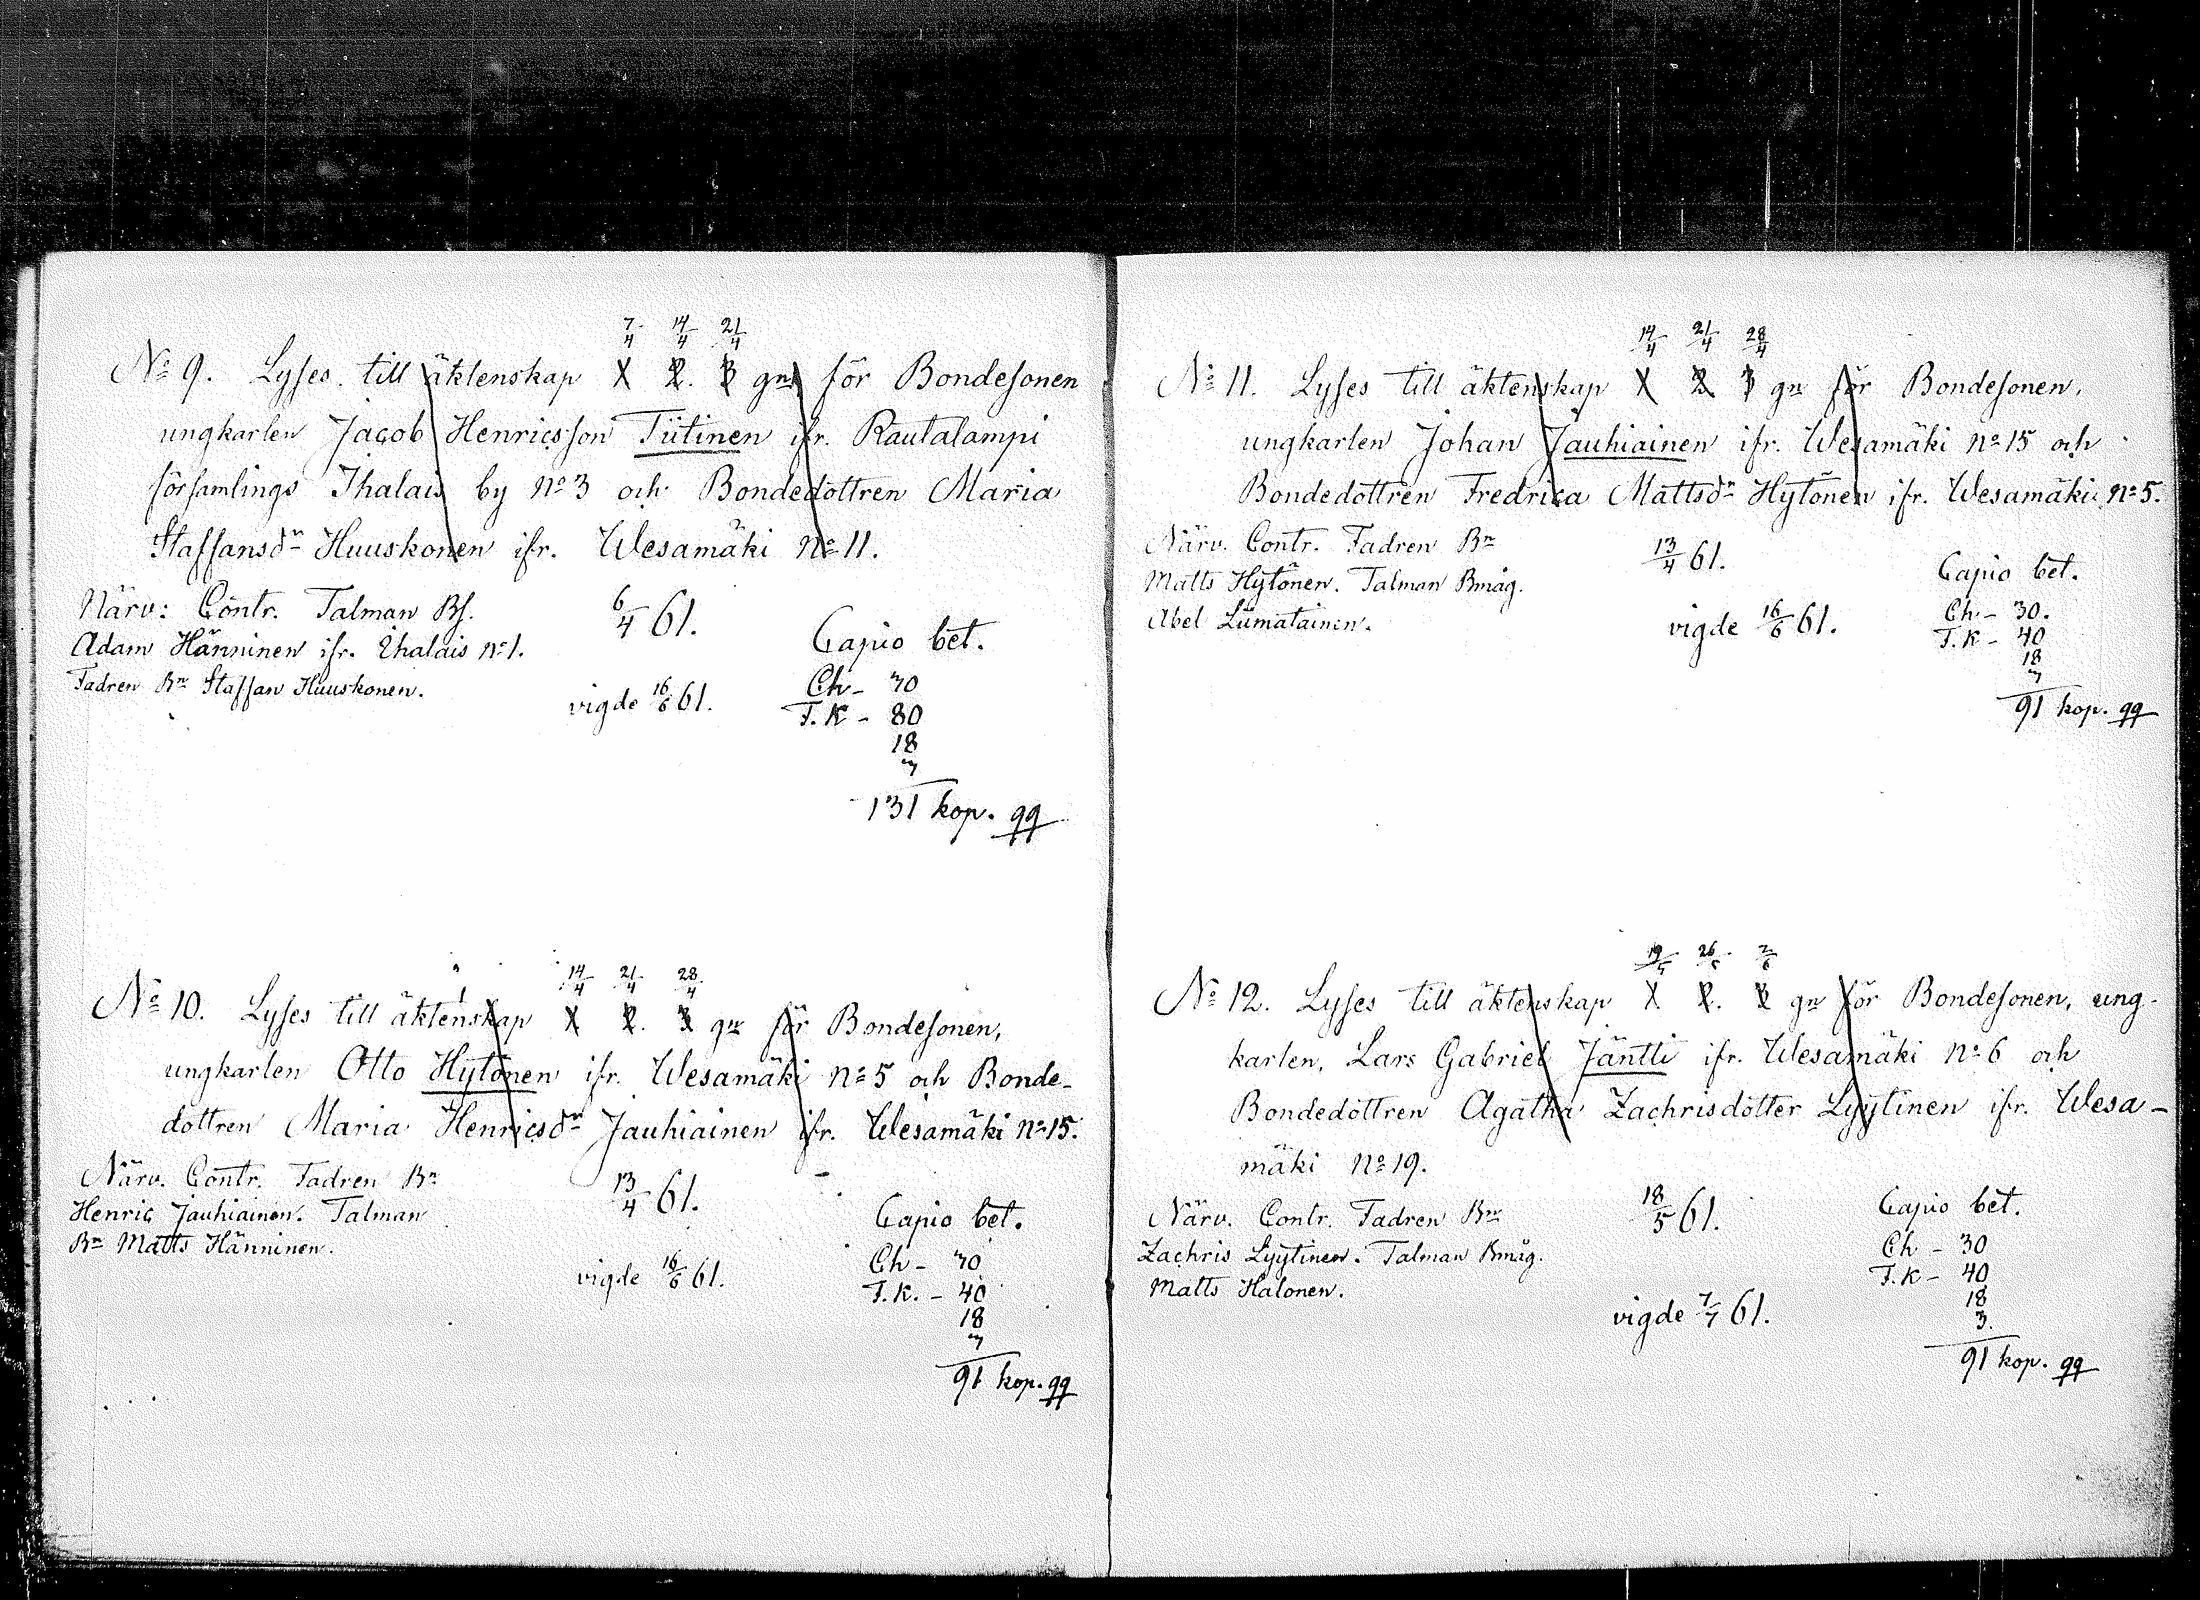 7/4 14/4 21/4
No 9. Lyses till äktenskap 1 2. 3 gn för Bondesonen
ungkarlen Jacob Henricsson Tiitinen ifr. Rautalampi
församlings Ihalais by No 3 och Bondedottren Maria
Staffansdr Huuskonen ifr. Wesamäki No 11.
Närv: Contr. Talman Bs.
Adam Hänninen ifr. Ihalais No 1.
Fadren Bn Staffan Huuskonen.
6/4 61.
vigde 16/6 61.
Capio bet.
Ch - 30
F.K - 80
18
3
131 kop. qq
14/4 21/4 28/4
No 10. Lyses till äktenskap 1 2. 3 gr för Bondesonen,
ungkarlen Otto Hytönen ifr. Wesamäki No 5 och Bonde-
dottren Maria Henricsdr Jauhiainen ifr. Wesamäki No 15.
Närv. Contr. Fadren Bn
Henric Jauhiainen. Talman
Bn Matts Hänninen.
13/4 61.
vigde 16/6 61.
Capio bet.
Ch - 30
F.K. - 40
18
3
91 kop. qq
14/4 21/4 28/4
No 11. Lyses till äktenskap 1 2 3 gr för Bondesonen,
ungkarlen Johan Jauhiainen ifr. Wesamäki No 15 och
Bondedottren Fredrica Mattsdr Hytönen ifr. Wesamäki No 5.
Närv. Contr. Fadren Bn
Matts Hytönen. Talman Bmåg.
Abel Liimatainen.
13/4 61.
vigde 16/6 61.
Capio bet.
Ch - 30.
F.K - 40
18
3
91 kop. qq
19/5 26/5 2/6
No 12. Lyses till äktenskap 1. 2. 3 gr för Bondesonen, ung-
karlen, Lars Gabriel Jäntti ifr. Wesamäki No 6 och
Bondedottren Agatha Zachrisdotter Lyytinen ifr. Wesa-
mäki No 19.
Närv. Contr. Fadren Bn
Zachris Lyytinen. Talman Bmåg.
Matts Halonen.
18/5 61.
vigde 7/7 61.
Capio bet.
Ch - 30
F.K - 40
18
3.
91 kop. qq